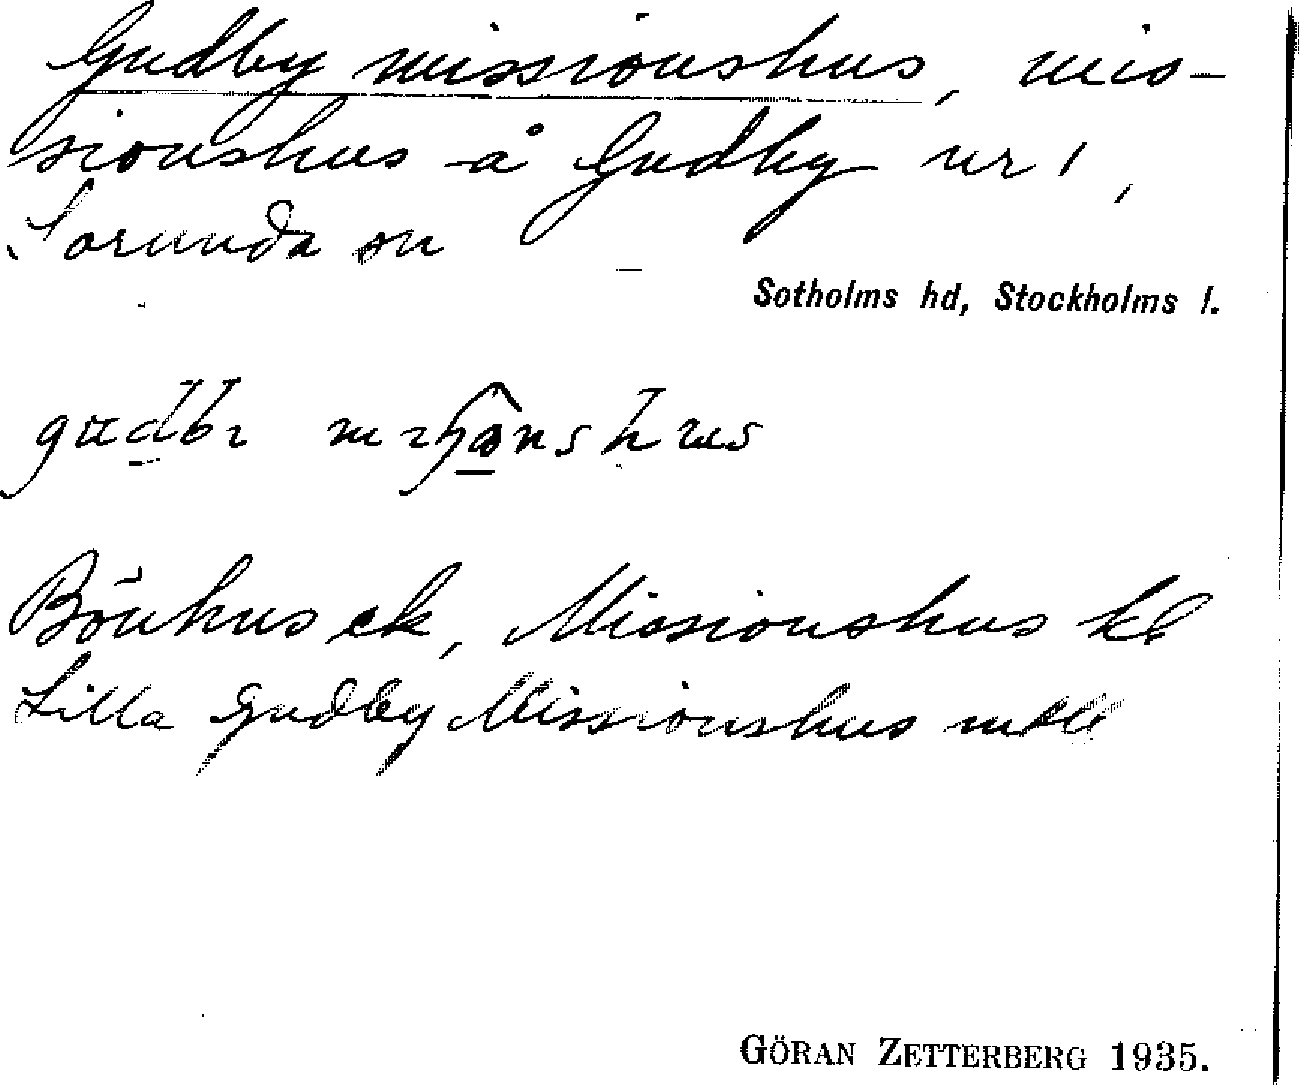 Gudby missionshus, mis-
sionshus å Gudby nr 1,
Sorunda sn
Sotholms hd, Stockholms l.
Bönhus ek, Missionshus kl
Lilla Gudby Missionshus
GÖRAN ZETTERBERG 1935.